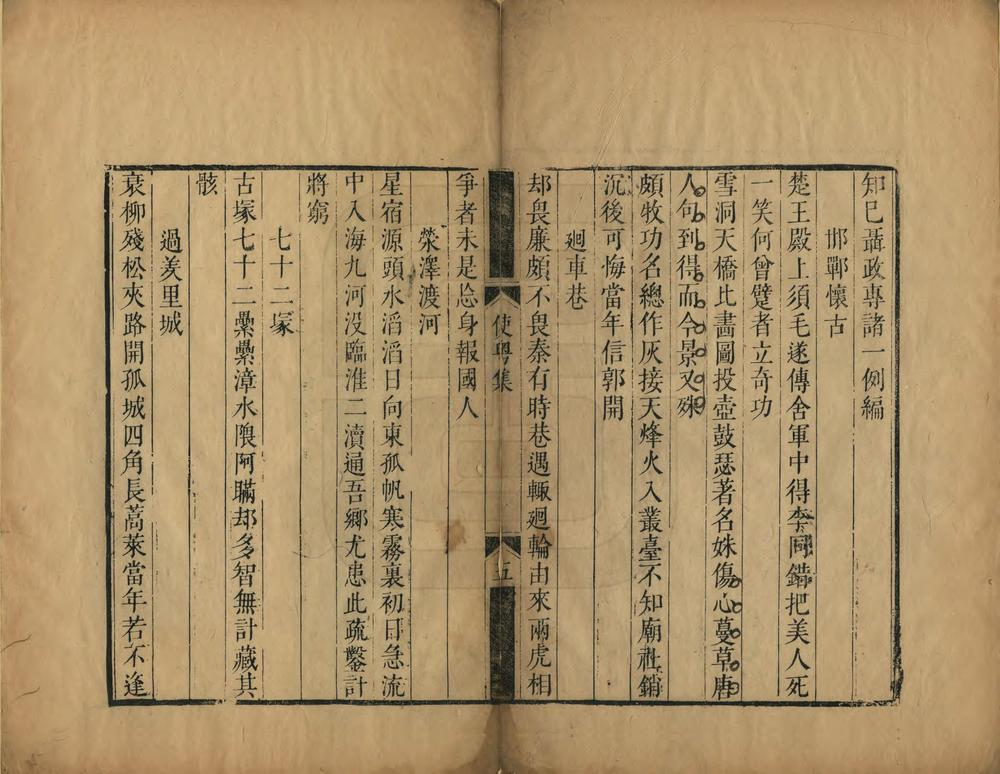 知已聶政專諸一例編
邯鄲懷古
楚王殿上須毛遂傳舍軍中得李同錯把美人死
一笑何曾躄者立奇功
雪洞天橋比畫圖投壺鼓瑟著名姝傷心蔓草唐
人句到得而今景又殊
頗牧功名總作灰接天烽火入叢臺不知廟社銷
沉後可悔當年信郭開
廻車巷
却畏廉頗不畏秦有時巷遇輙廻輪由來兩虎相
使粵集
五
爭者未是忘身報國人
滎澤渡河
星宿源頭水滔滔日向東孤帆寒霧裏初日急流
中入海九河没臨淮二瀆通吾鄉尤患此疏鑿計
將窮
七十二冢
古塚七十二纍纍漳水隈阿瞞却多智無計藏其
骸
過羑里城
衰柳殘松夾路開孤城四角長蒿萊當年若不逢